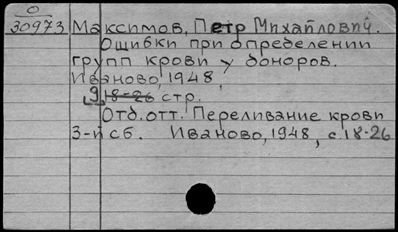 О
30973 Максимов, Петр Михайлович.
Ошибки при определении
групп крови у доноров.
Иваново, 1948,
9 18-26 стр.
Отд. отт. Переливание крови
3-й сб. Иваново, 1948, с. 18-26